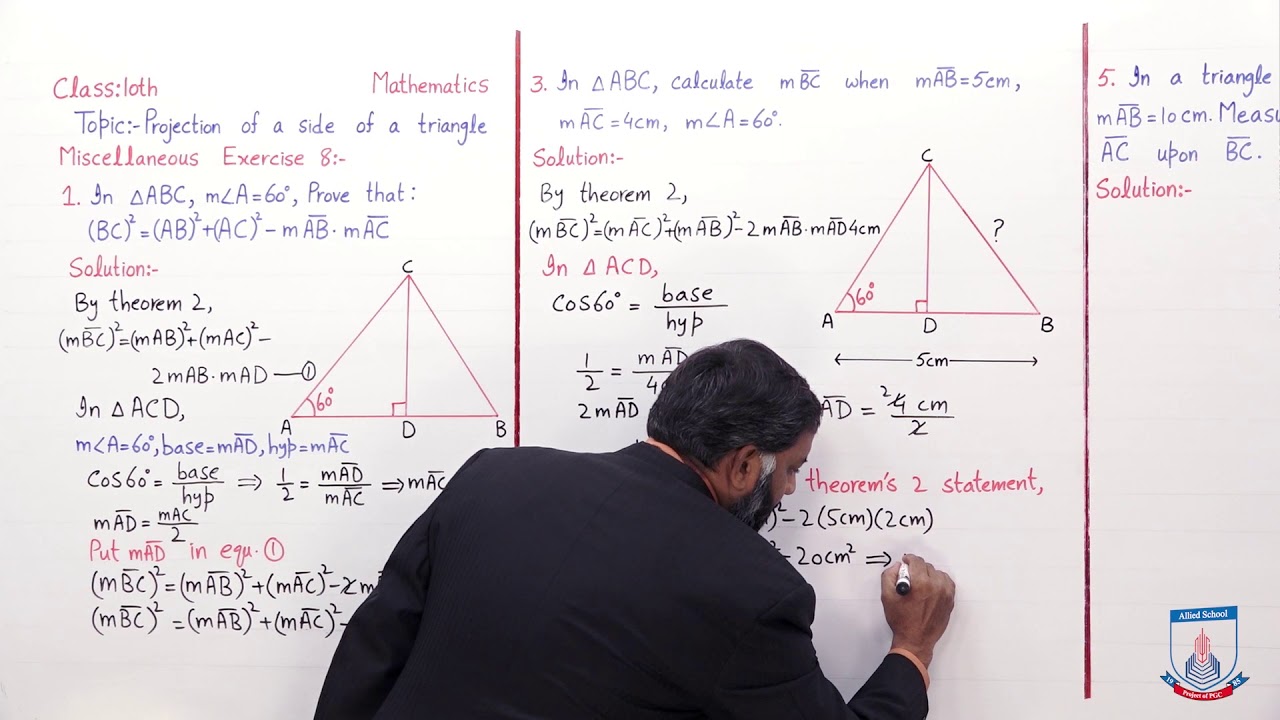 Class:10th Mathematics
Topic:- Projection of a side of a triangle
Miscellaneous Exercise 8:-
1. In △ABC, m∠A=60°, Prove that:
(BC)²=(AB)²+(AC)²-mA̅B̅·mA̅C̅
Solution:-
By theorem 2,
(mB̅C̅)²=(mAB)²+(mAC)²-
2mAB·mAD—①
In △ACD,
m∠A=60°, base=mA̅D̅, hyp=mA̅C̅
Cos60°= base/hyp ⇒ 1/2 = mA̅D̅/mA̅C̅ ⇒ mA̅C̅
mA̅D̅ = mAC/2
Put mA̅D̅ in equ. ①
(mB̅C̅)²=(mA̅B̅)²+(mA̅C̅)²-2
(mB̅C̅)²=(mA̅B̅)²+(mA̅C̅)²-
C
60°
A D B
3. In △ABC, calculate mB̅C̅ when mA̅B̅=5cm,
mA̅C̅=4cm, m∠A=60°.
Solution:-
By theorem 2,
(mB̅C̅)²=(mA̅C̅)²+(mA̅B̅)²-2mA̅B̅·mA̅D̅
In △ACD,
Cos60° = base/hyp
1/2 = mA̅D̅/4
2mA̅D̅
A̅D̅ = ²4 cm/2
theorem's 2 statement,
)²-2(5cm)(2cm)
-20cm² ⇒
C
4cm
?
60°
A D B
5cm
5. In a triangle
mA̅B̅=10cm.
A̅C̅ upon B̅C̅.
Solution:-
Allied School
19 85
Project of PGC